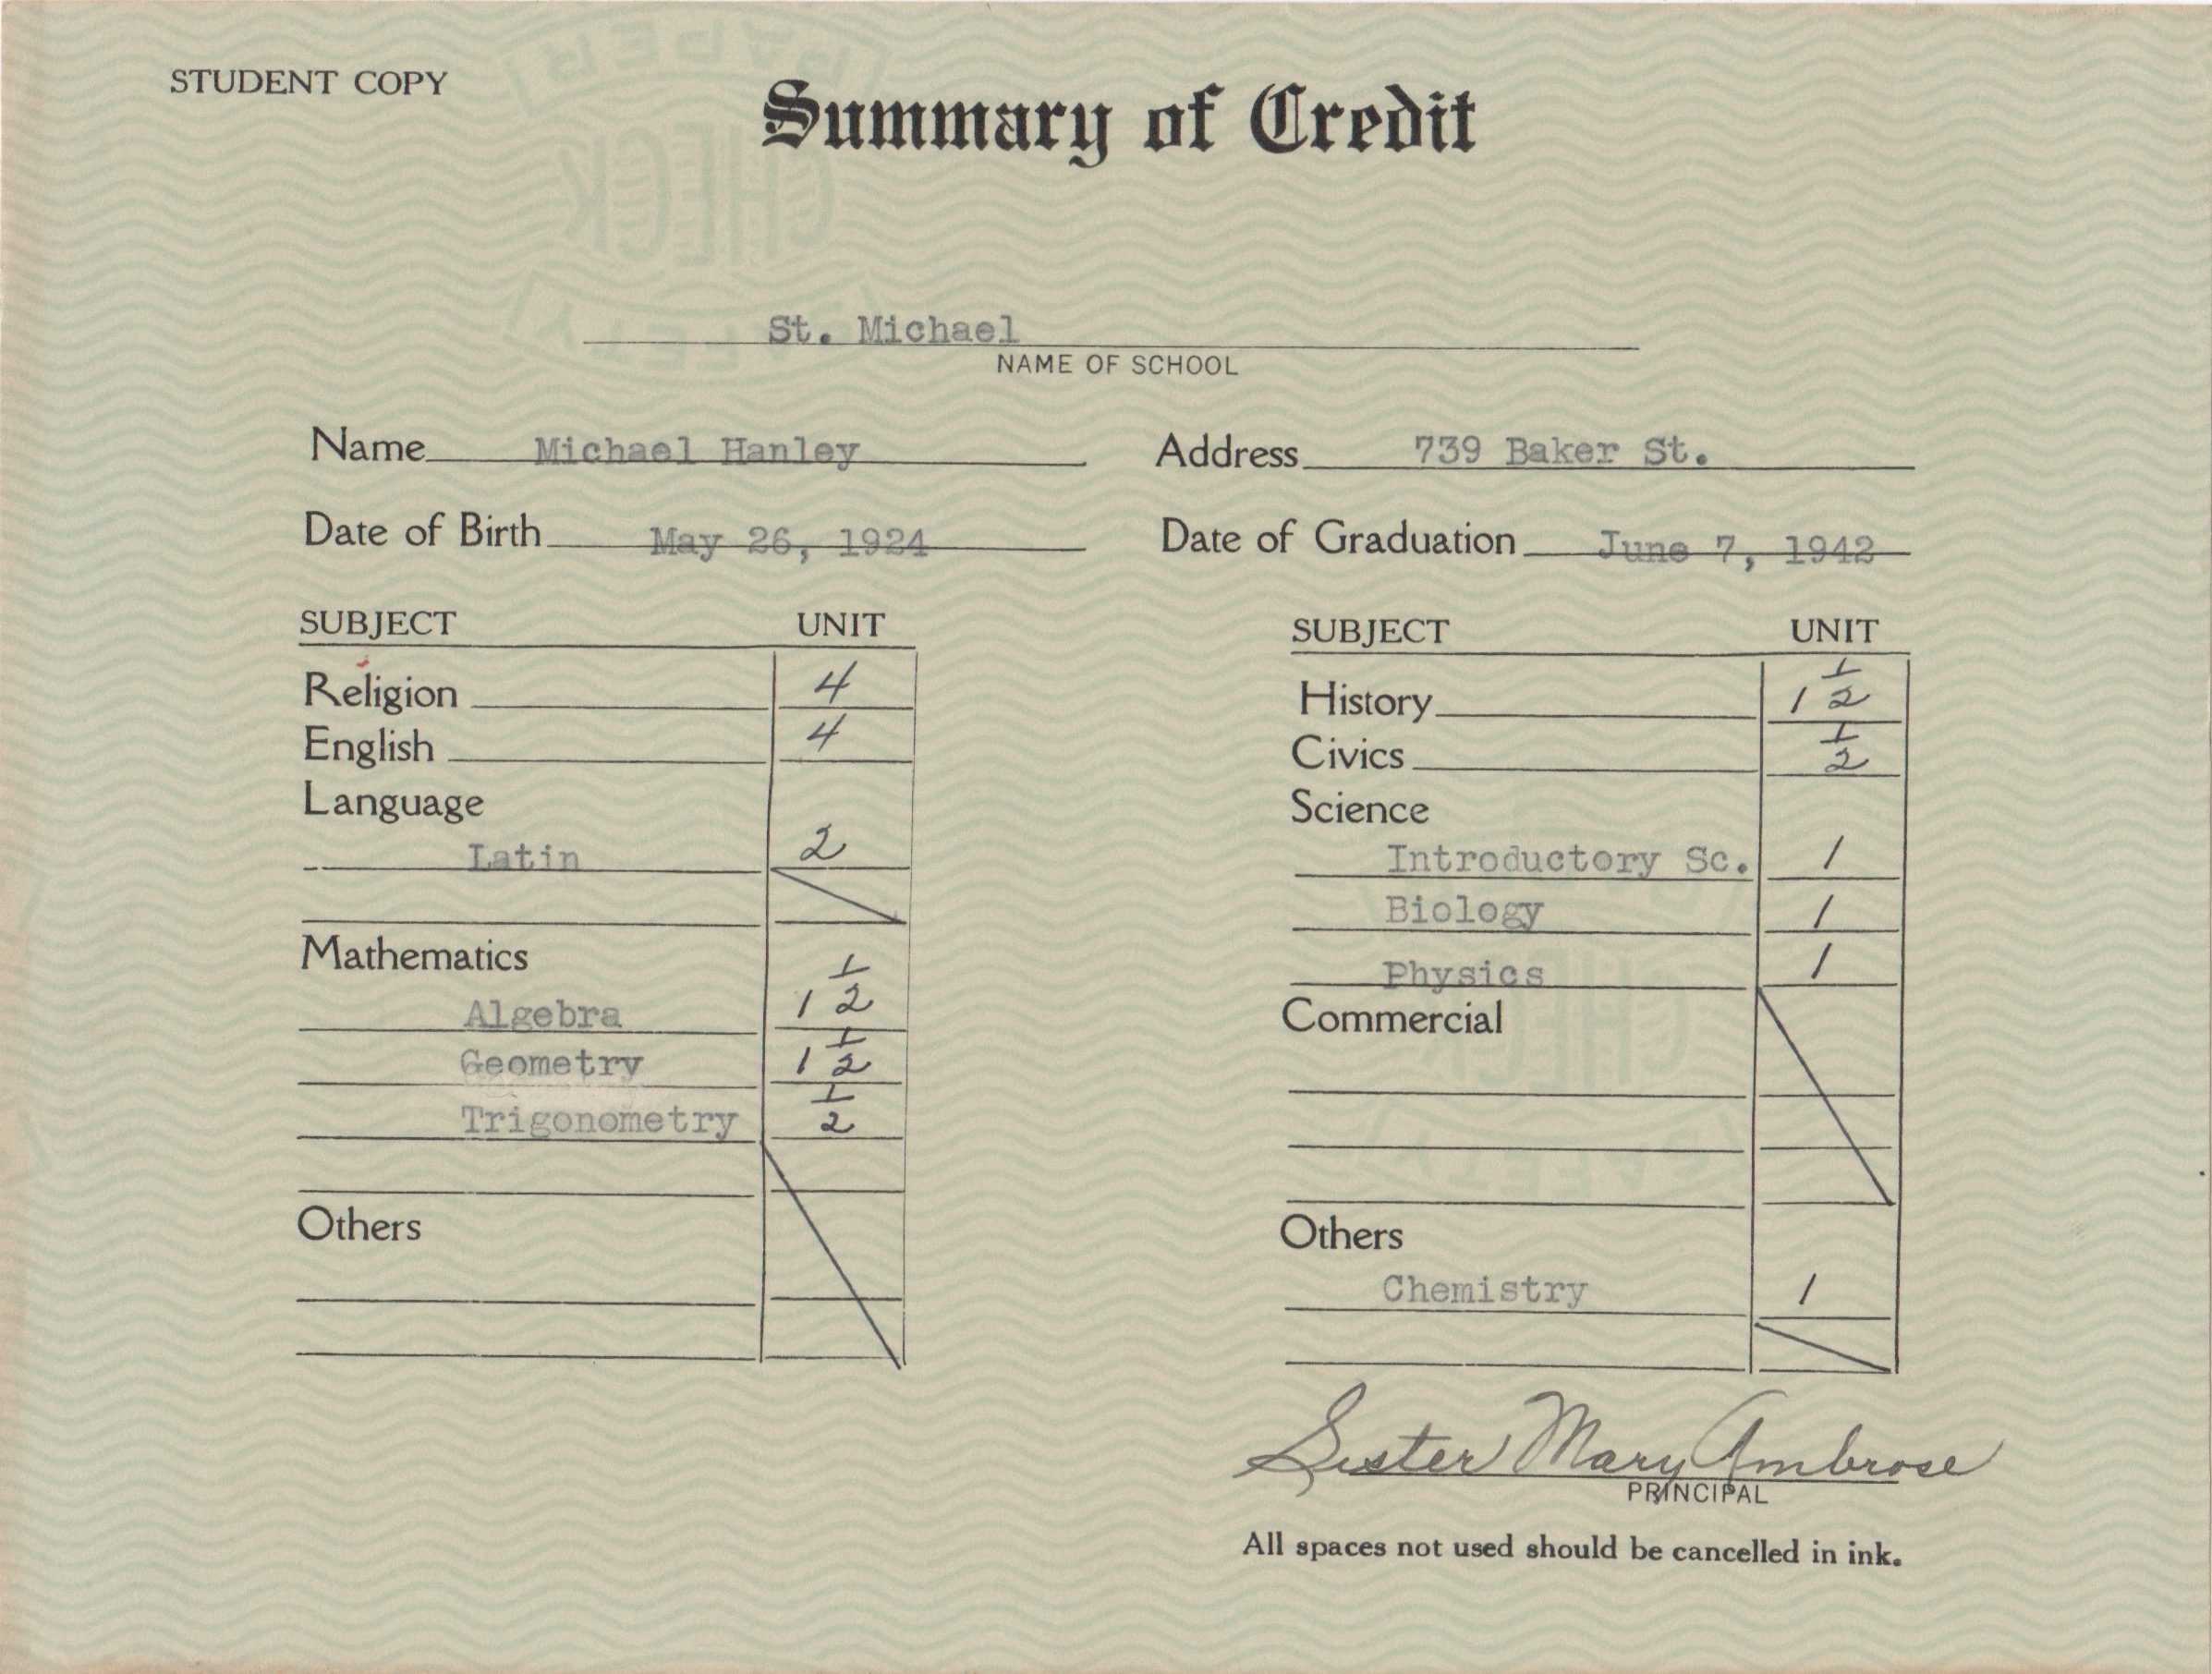 STUDENT COPY
Summary of Credit
St. Michael
NAME OF SCHOOL
Name Michael Hanley Address 739 Baker St.
Date of Birth May 26, 1924 Date of Graduation June 7, 1942
SUBJECT UNIT
Religion 4
English 4
Language
Latin 2
Mathematics
Algebra 1 1/2
Geometry 1 1/2
Trigonometry 1/2
Others
SUBJECT UNIT
History 1 1/2
Civics 1/2
Science
Introductory Sc. 1
Biology 1
Physics 1
Commercial
Others
Chemistry 1
Sister Mary Ambrose
PRINCIPAL
All spaces not used should be cancelled in ink.